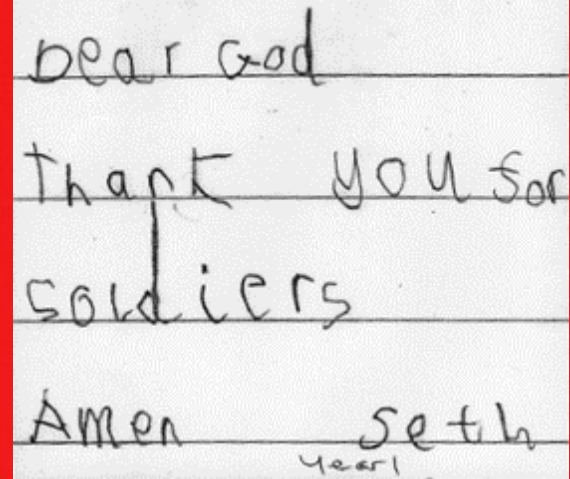 Dear God
thank you for
soldiers
Amen seth
year 1